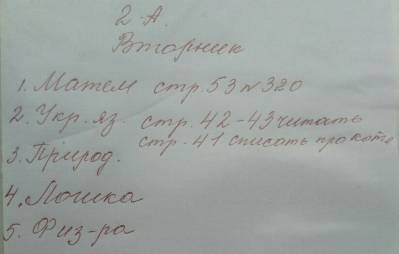 2-А.
Вторник
1. Матем стр. 53 № 320
2. Укр. яз. стр. 42-43 читать
стр. 41 списать про кота
3. Природ.
4. Логика
5. Физ-ра